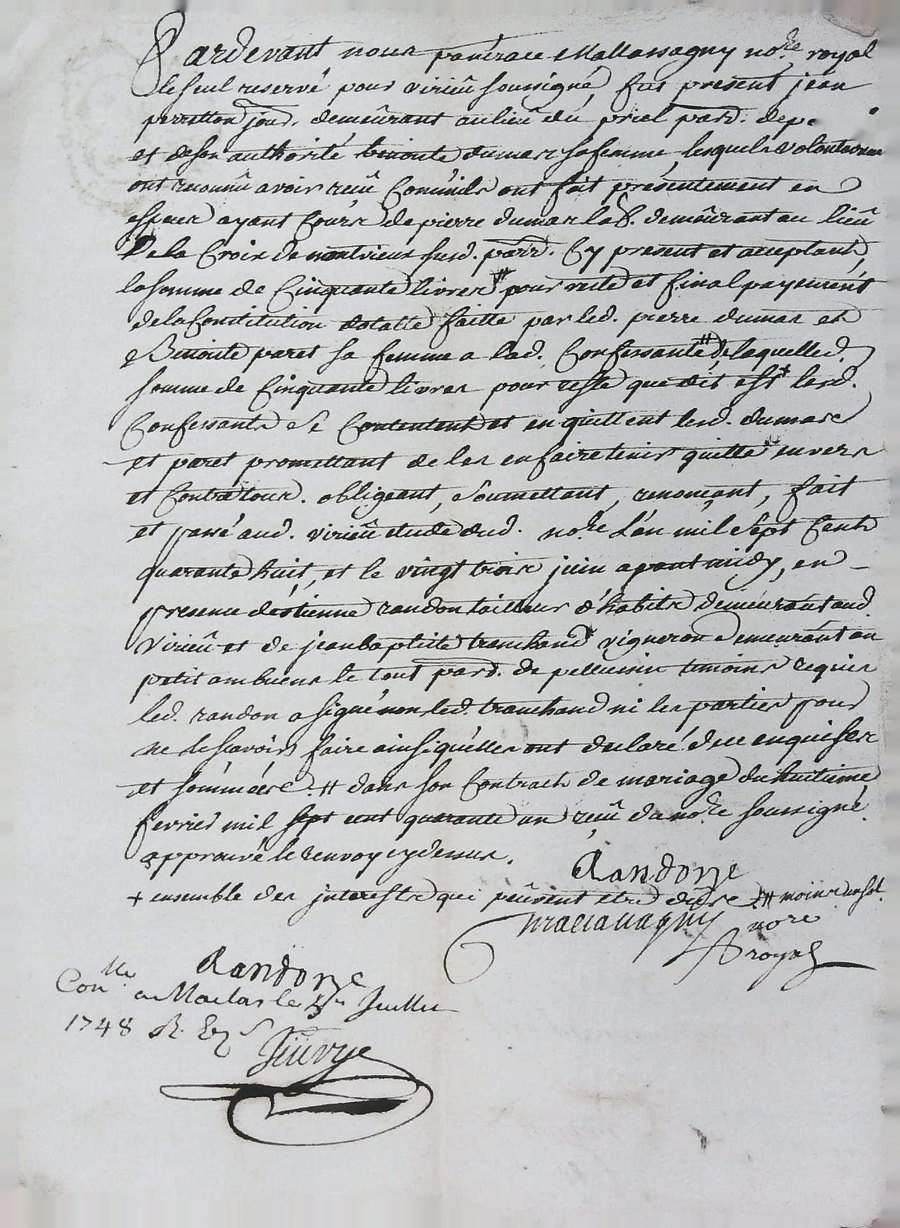 Pardevant nous pancrace Mallassagny no.re royal
le seul reservé pour virieu soussigné, fut present jean
perretton jour. demeurant au lieu du priel parr. de pe.
et de son authorité benoite dumas sa femme, lesquels volontairem
ont reconnu avoir receu comm'ils ont fait présentement en
especes ayant cours de pierre dumas lab. demeurant au lieu
de la Croix de montvieux susd. parr. Cy present et acceptant,
la somme de Cinquante livres # pour reste et final payement
de la Constitution dotalle faitte par led. pierre dumas et
Benoite paret sa femme a lad. Confessante # de laquelle d.
somme de Cinquante livres pour reste que dit est + lesd.
Confessants se Contentent et en quittent lesd. dumas
et paret promettant de les en faire tenir quitte envers
et Contre tous. obligeant, soumettant, renonçant, fait
et passé aud. virieu etude dud. no.re L'an mil sept Cents
quarante huit, et le vingt trois juin apant midy, en
presence d'estienne randon tailleur d'habits demeurant aud.
virieu et de jean baptiste tranchand vigneron demeurant au
petit ambuens le tout parr. de pellussin temoins requis
led. randon a signé non led. tranchand ni les parties pour
ne le sçavoir faire ainsi qu'elles ont declaré de ce enquises
et sommées. # dans son Contract de mariage du huitieme
fevrier mil sept cent quarante un reçu du no.re soussigné.
approuvé le renvoy cy dessus.
Randon
+ ensemble des interests qui peuvent etre dus # moins un sol.
Mallassagny no.re
royal
Randon
Con.lle a Maclas le Juillet
1748 R.